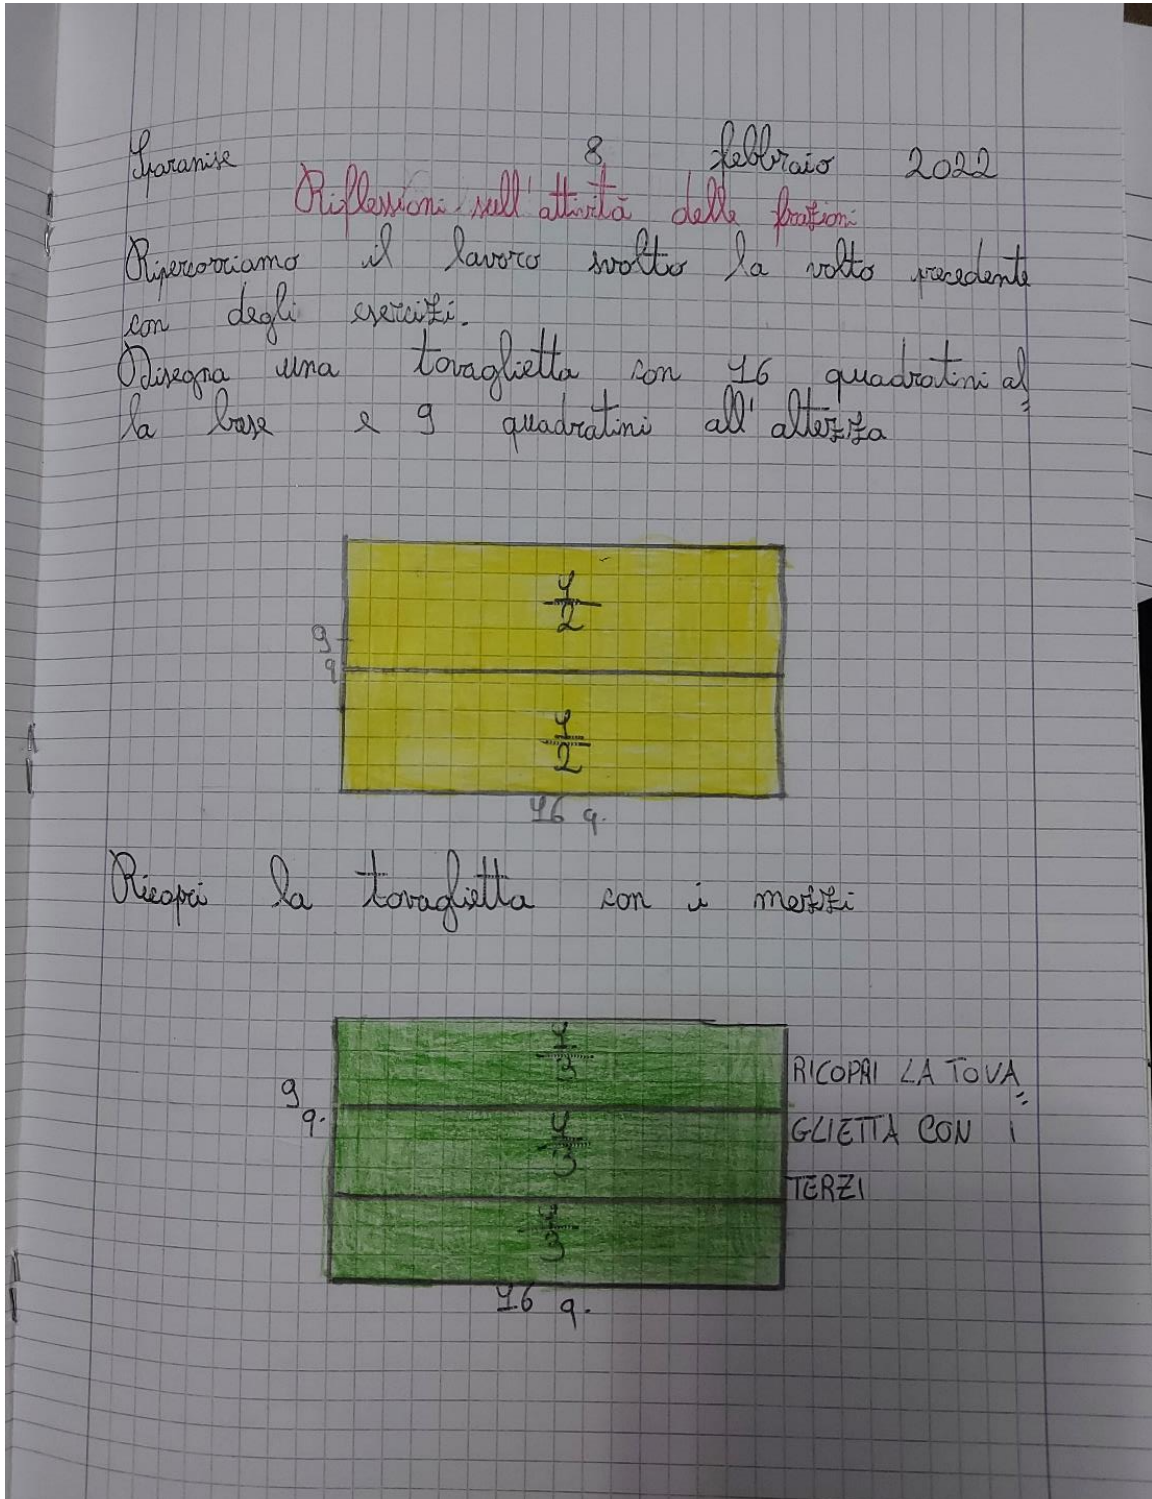 Sparanise 8 febbraio 2022
Riflessioni sull'attività delle frazioni
Ripercorriamo il lavoro svolto la volto precedente
con degli esercizi.
Disegna una tovaglietta con 16 quadratini al=
la base e 9 quadratini all'altezza
1
2
9
q.
1
2
16 q.
Ricopri la tovaglietta con i mezzi
1
3
RICOPRI LA TOVA=
9
q.
1
3
GLIETTA CON I
TERZI
1
3
16 q.